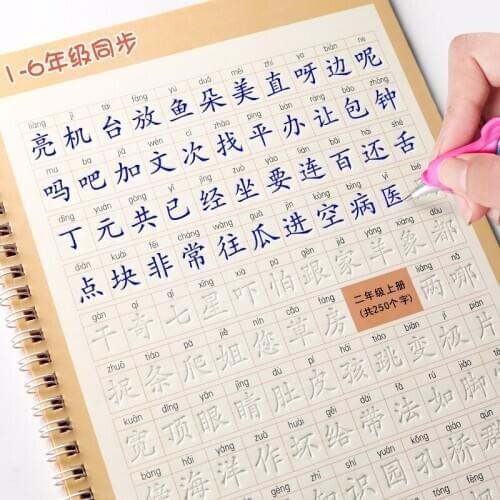 1-6年级同步
liàng jī tái fàng yú duǒ měi zhí ya biān ne
亮机台放鱼朵美直呀边呢
ma ba jiā wén cì zhǎo píng bàn ràng bāo zhōng
吗吧加文次找平办让包钟
dīng yuán gòng yǐ jīng zuò yào lián bǎi hái shé
丁元共已经坐要连百还舌
diǎn kuài fēi cháng wǎng guā jìn kōng bìng yī
点块非常往瓜进空病医
gān qí qī xīng xià pà gēn jiā yáng xiàng dōu
干奇七星吓怕跟家羊象都
二年级上册
(共250个字)
liǎng nǎ
两哪
zhuō tiáo pá jiě nín zhāng fáng
捉条爬姐您章房
kuān dǐng yǎn jīng dù pí hái tiào biàn fàng piàn
宽顶眼睛肚皮孩跳变放片
hǎi yáng zuò huài gěi dài fǎ rú jiǎo
海洋作坏给带法如脚
识园孔桥群